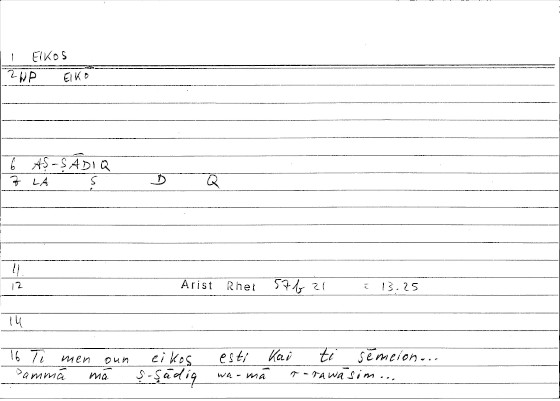 1 EIKOS
2 NP EIKO
6 AṢ-ṢĀDIQ
7 LA Ṣ D Q
11
12 Arist Rhet 57b 21 = 13.25
14
16 Ti men oun eikos esti kai ti sēmeion...
ʾammā mā ṣ-ṣādiq wa-mā r-rawāsim...